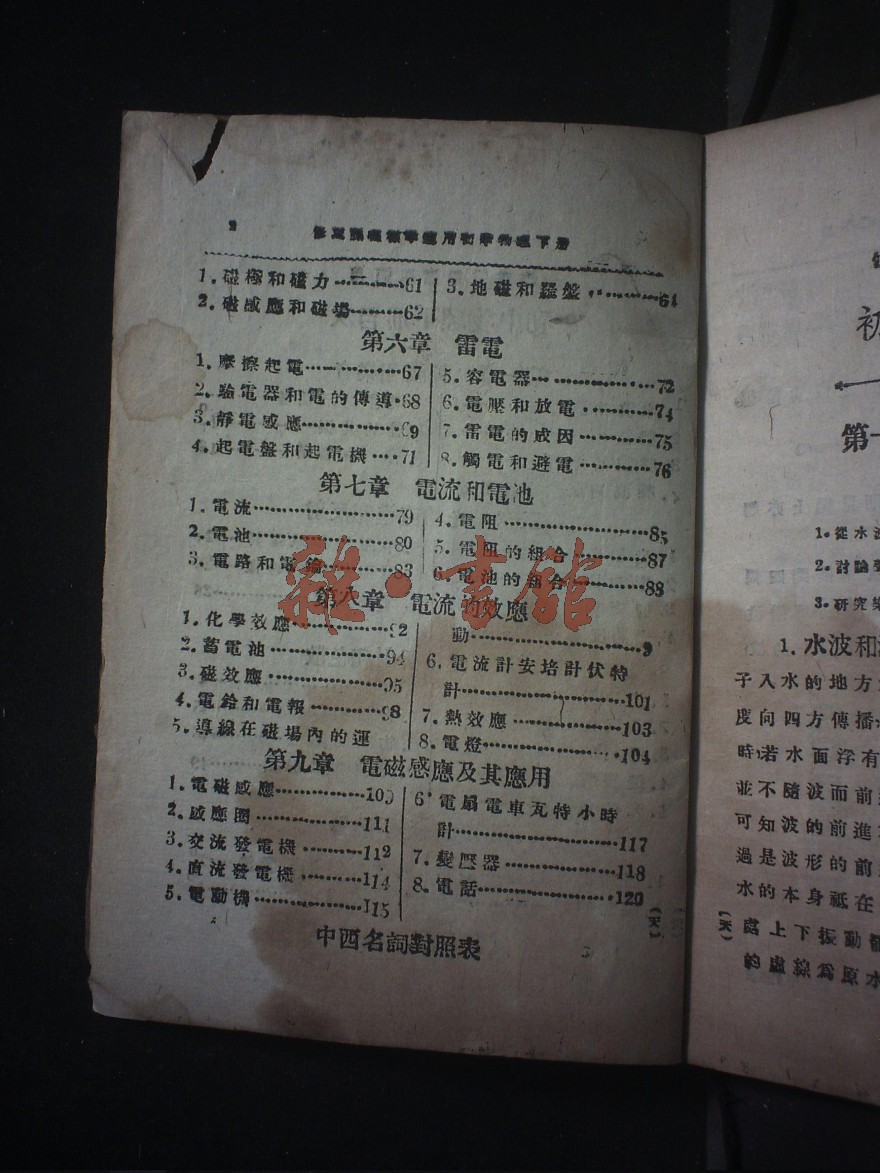 2 修正課程標準適用初中物理下册
1. 磁極和磁力…………61
2. 磁感應和磁場………62
3. 地磁和羅盤…………64
第六章 雷電
1. 摩擦起電……………67
2. 驗電器和電的傳導·68
3. 靜電感應……………69
4. 起電盤和起電機……71
5. 容電器………………72
6. 電壓和放電…………74
7. 雷電的成因…………75
8. 觸電和避電…………76
第七章 電流和電池
1. 電流…………………79
2. 電池…………………80
3. 電路和電……………83
4. 電阻…………………85
5. 電阻的組合…………87
6. 電池的組合…………88
第八章 電流的效應
1. 化學效應……………92
2. 蓄電池………………94
3. 磁效應………………95
4. 電鈴和電報…………98
5. 導線在磁場內的運
動………………………9
6. 電流計安培計伏特
計………………………101
7. 熱效應………………103
8. 電燈…………………104
第九章 電磁感應及其應用
1. 電磁感應……………109
2. 感應圈………………111
3. 交流發電機…………112
4. 直流發電機…………114
5. 電動機………………115
6. 電扇電車瓦特小時
計………………………117
7. 變壓器………………118
8. 電話…………………120
(天)
中西名詞對照表
雜·書館
初
第一
1. 從水波
2. 討論
3. 研究
1. 水波和
子入水的地方
度向四方傳播
時若水面浮有
並不隨波而前
可知波的前進
過是波形的前
水的本身祇在
(天)
處上下振動
的虛線爲原水